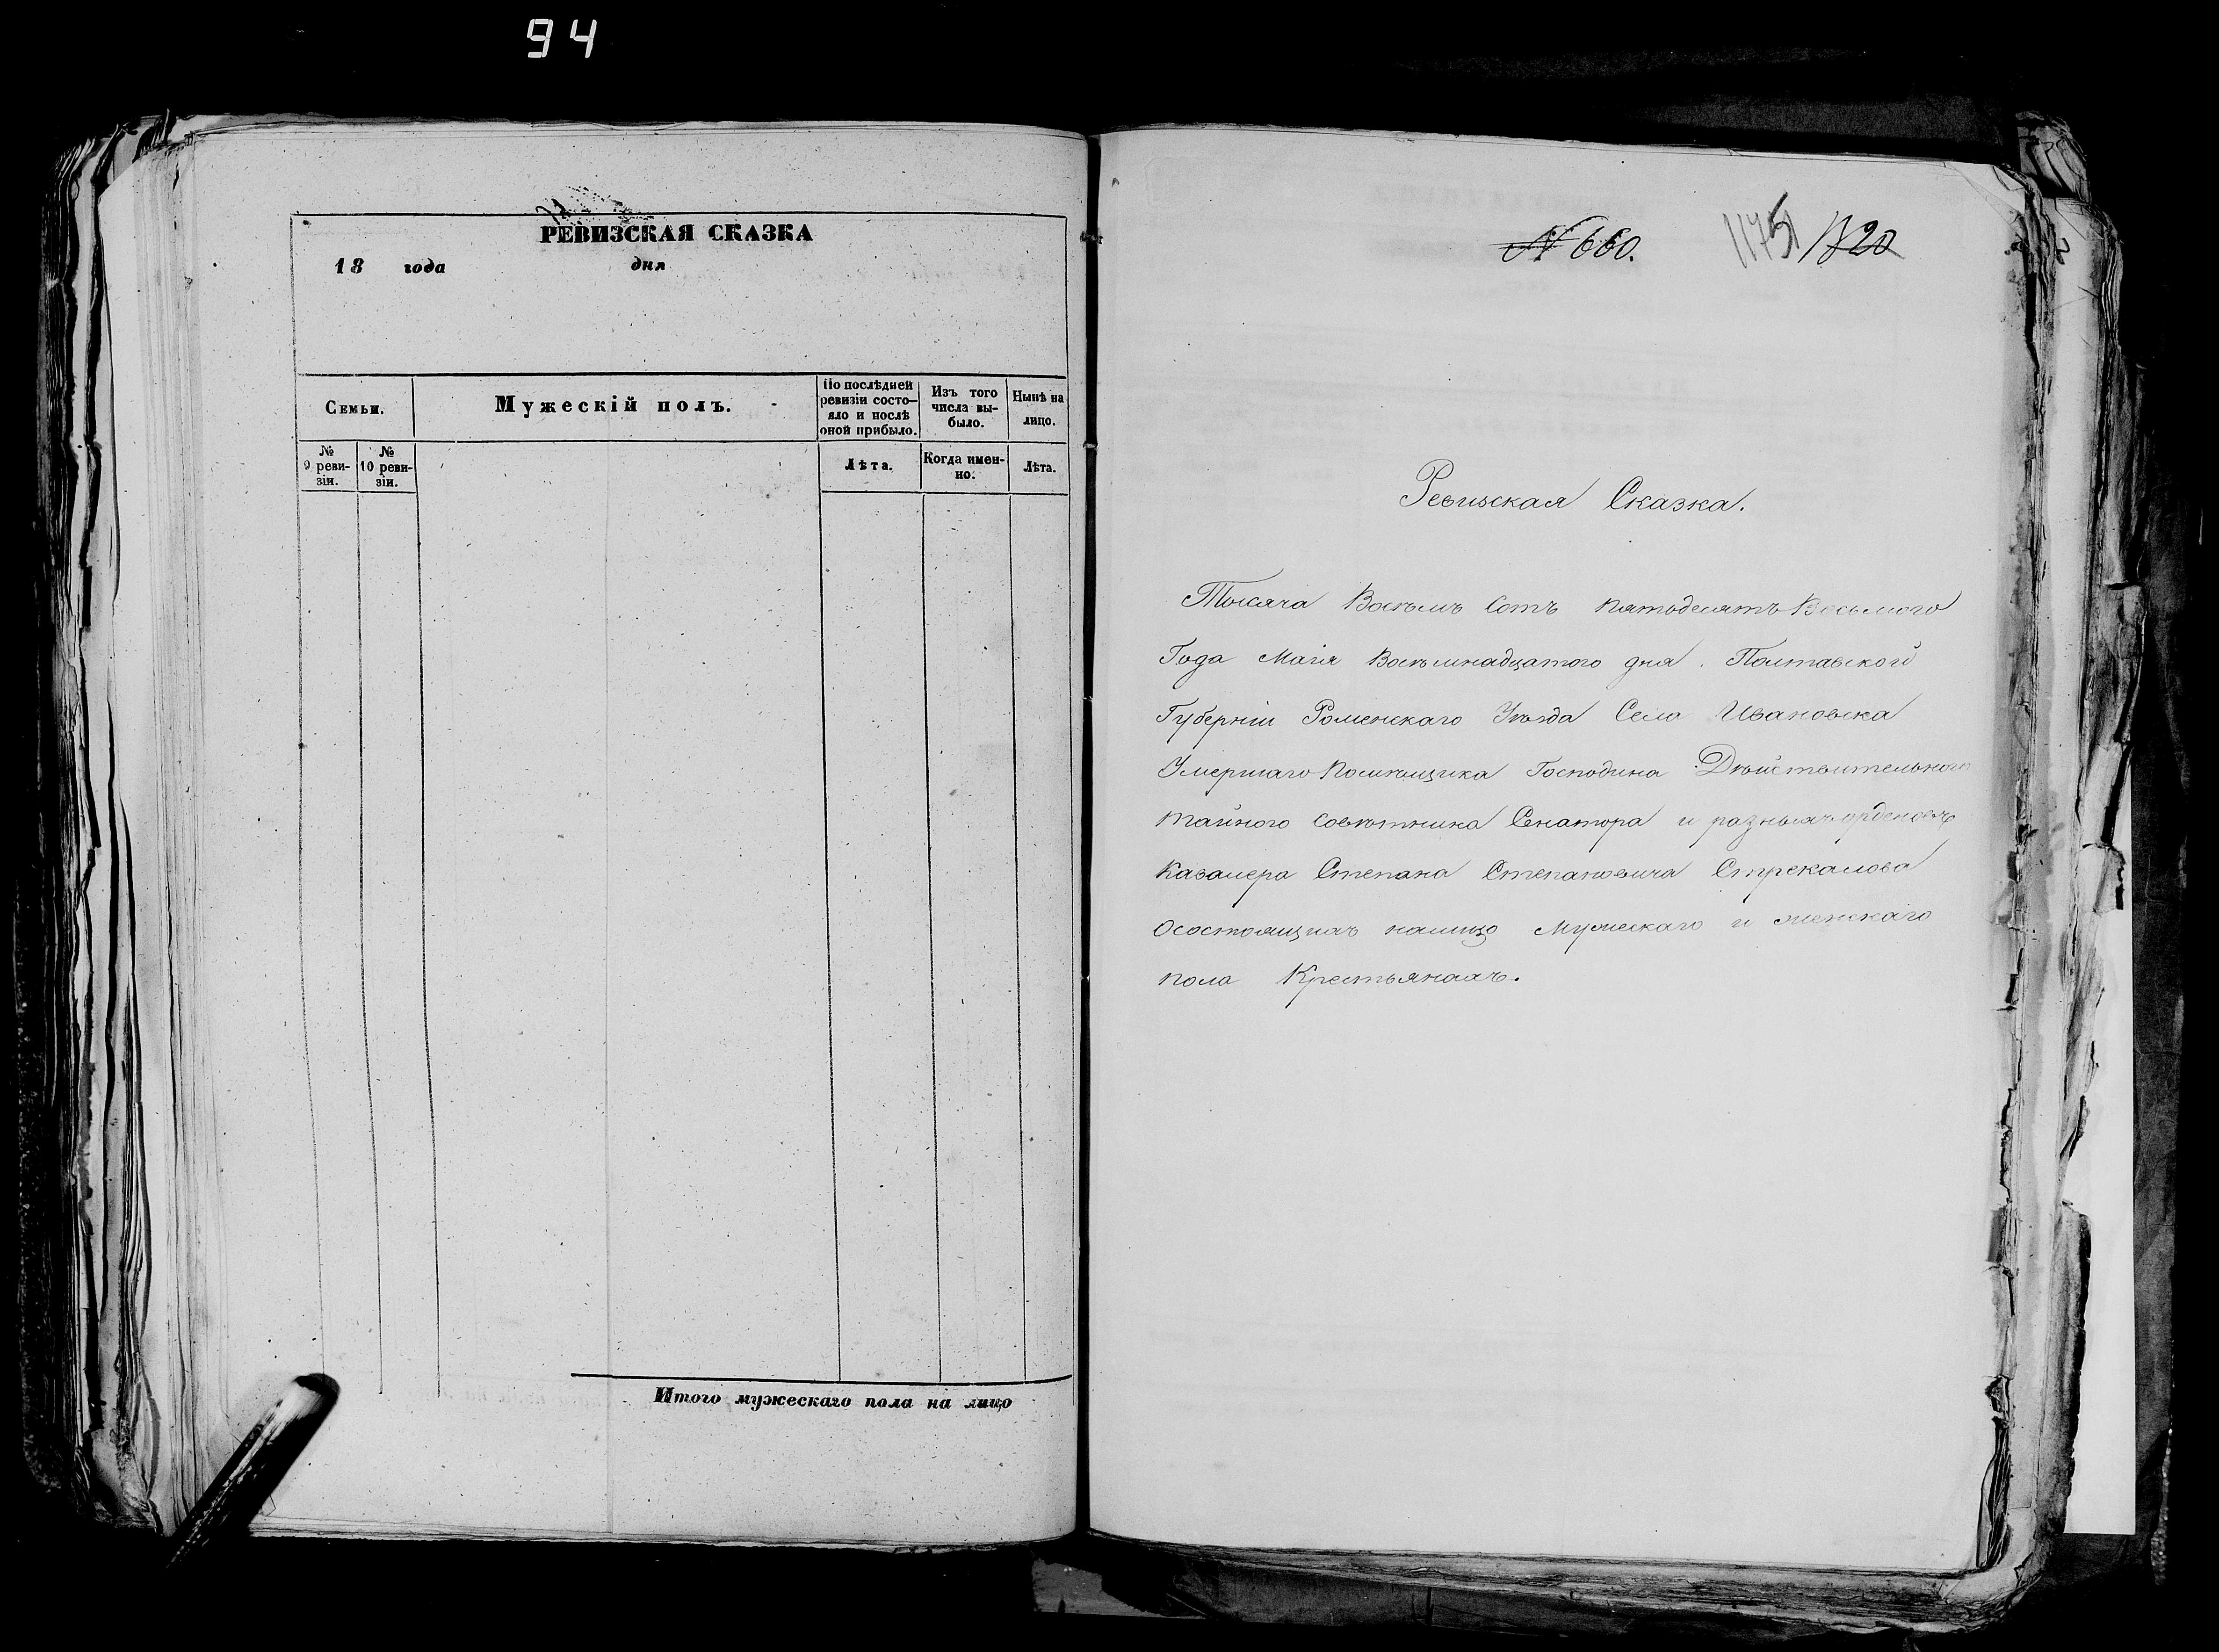 94
РЕВИЗСКАЯ СКАЗКА
18 года дня
Семьи.
Мужескій полъ.
По послѣдней ревизіи состо-
яло и послѣ оной прибыло.
Изъ того числа вы-
было.
Нынѣ на лицо.
№ 9 реви-
зіи.
№ 10 реви-
зіи.
Лѣта.
Когда имен-
но.
Лѣта.
Итого мужескаго пола на лицо
№ 660.
1175
Ревизская Сказка.
Тысяча Восѣмъ Сотъ Пятьдесятъ Восьмого
Года Маія Восѣмнадцатого дня. Полтавской
Губерніи Роменскаго Уѣзда Села Ивановска
Умершаго Помѣщика Господина Дѣйствительного
тайного Совѣтника Сенатора и разныхъ орденовъ
Кавалера Степана Степановича Стрекалова
Осостоящихъ налицо Мужескаго и женскаго
пола Крестьянахъ.